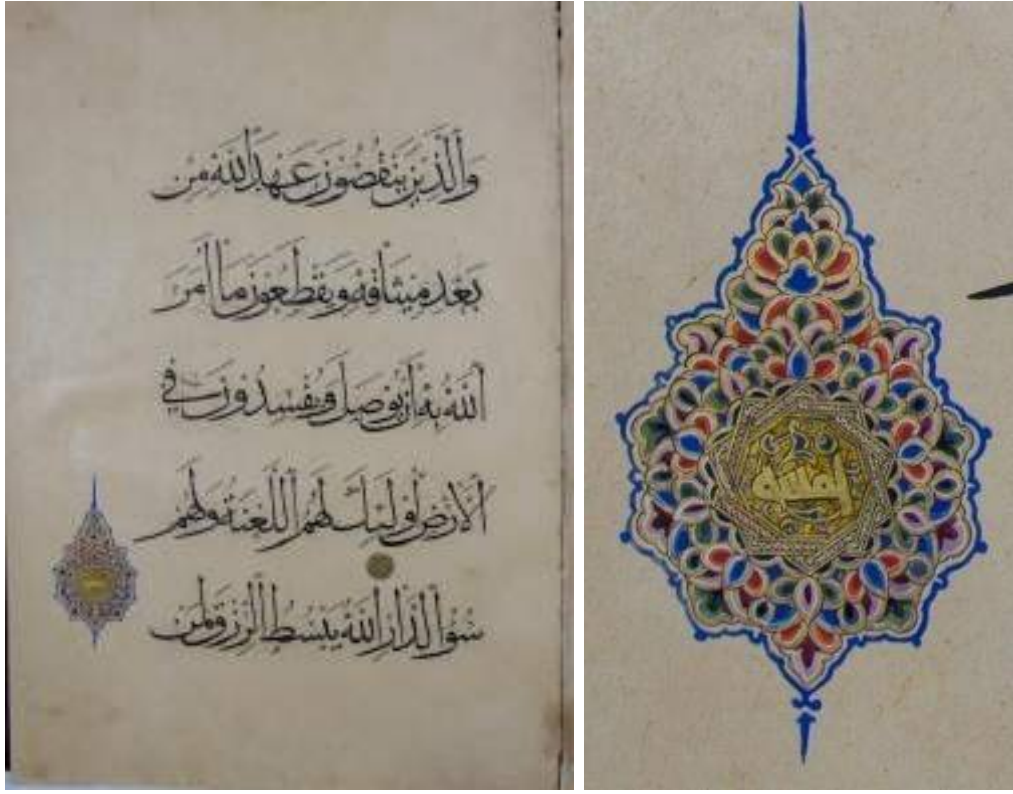 وَٱلَّذِينَ يَنْقُضُونَ عَهْدَ ٱللَّهِ مِنْ
بَعْدِ مِيثَاقِهِ وَيَقْطَعُونَ مَا أَمَرَ
ٱللَّهُ بِهِ أَنْ يُوصَلَ وَيُفْسِدُونَ فِي
ٱلْأَرْضِ أُولَئِكَ لَهُمُ ٱللَّعْنَةُ وَلَهُمْ
سُوءُ ٱلدَّارِ ٱللَّهُ يَبْسُطُ ٱلرِّزْقَ لِمَنْ